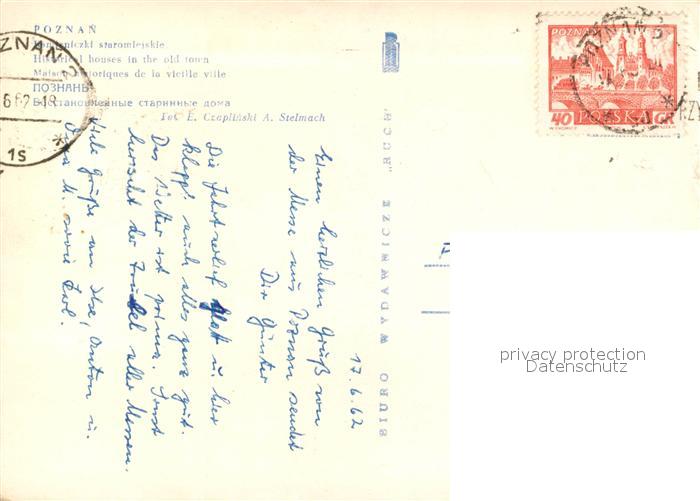 POZNAŃ
Kamieniczki staromiejskie
Historical houses in the old town
Maisons historiques de la vieille ville
ПОЗНАНЬ
Восстановленные старинные дома
Fot. E. Czapliński A. Stelmach
POZNAŃ
6 62-18
1s
POZNAŃ
40 POLSKA GR
POZNAŃ
BIURO WYDAWNICZE „RUCH"
17.6.62
Einen herzlichen Gruß von
der Messe aus Poznan sendet
Dir Günter
Die Fahrt verlief glatt u. hier
klappt auch alles ganz gut.
Das Wetter ist prima. Sonst
herrscht der Trubel aller Messen.
Viele Grüße an Ilse, Anton u.
M. sowie
privacy protection
Datenschutz